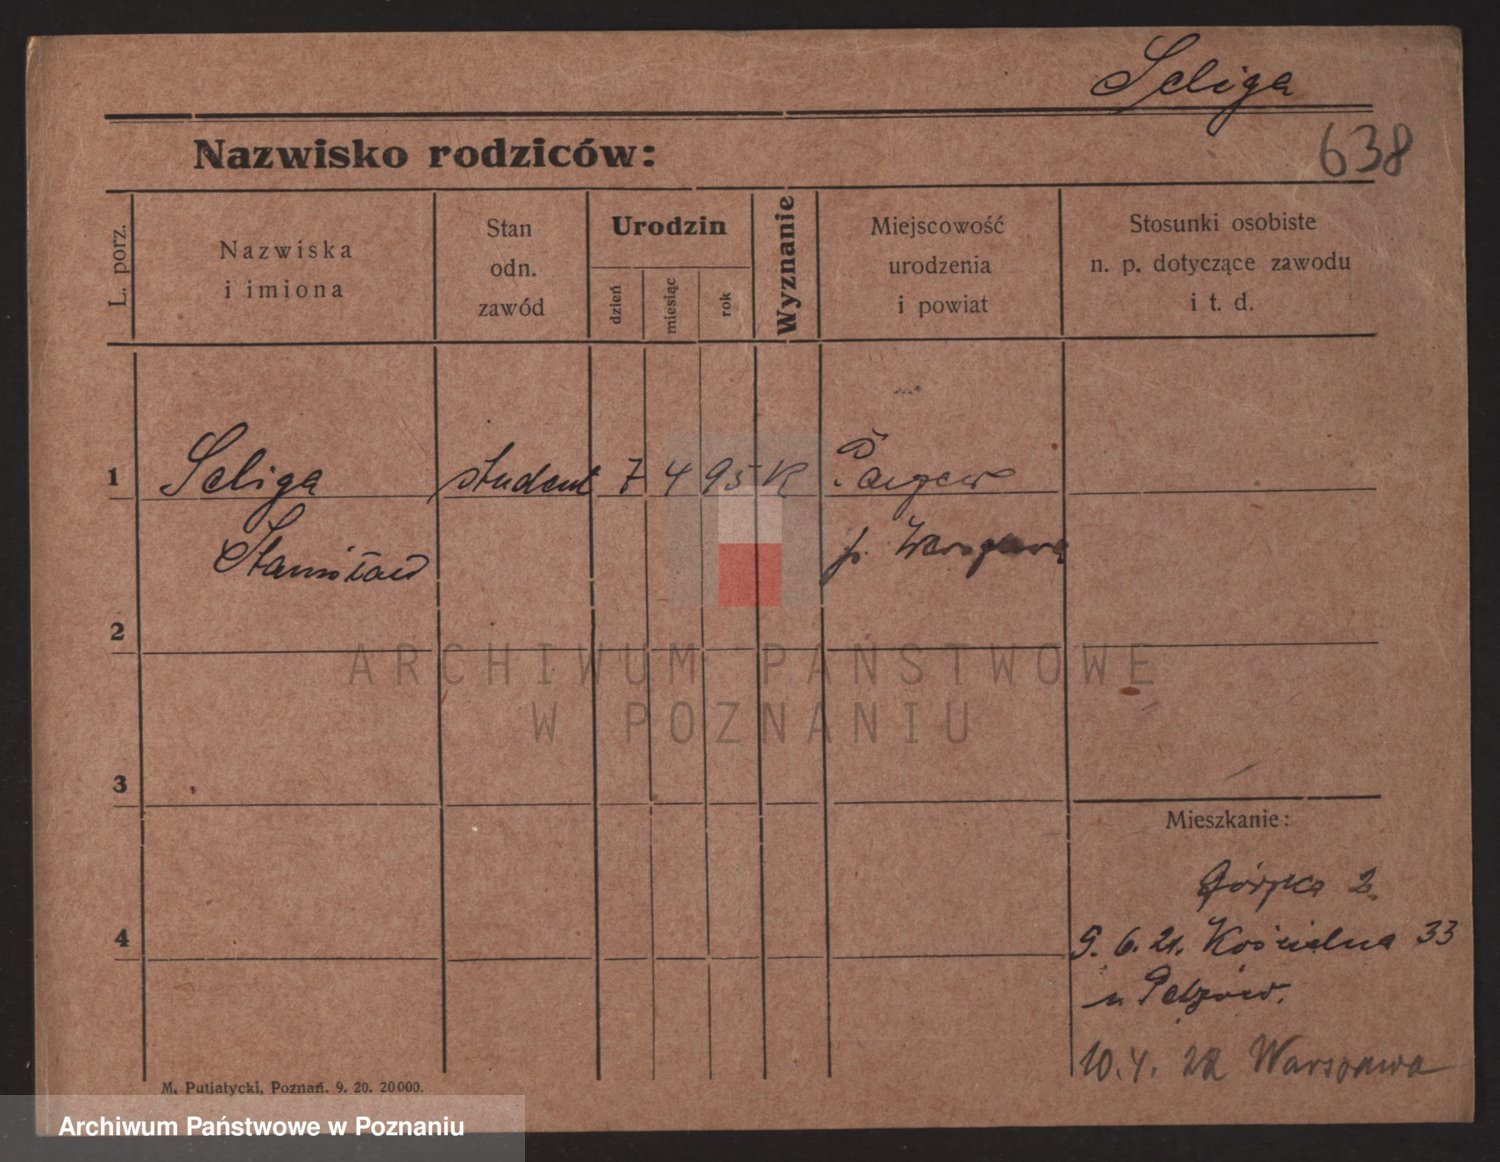 Seliga
638
Nazwisko rodziców:
L. porz.
Nazwiska
i imiona
Stan
odn.
zawód
Urodzin
dzień
miesiąc
rok
Wyznanie
Miejscowość
urodzenia
i powiat
Stosunki osobiste
n. p. dotyczące zawodu
i t. d.
1 Seliga student 7 4 95 K
Stanisław p. Warszawa
2
3
4
Mieszkanie:
Górska 2
5. 6. 21. Kościelna 33
u
10. 4. 22 Warszawa
M. Putiatycki, Poznań. 9. 20. 20000.
ARCHIWUM PAŃSTWOWE
W POZNANIU
Archiwum Państwowe w Poznaniu